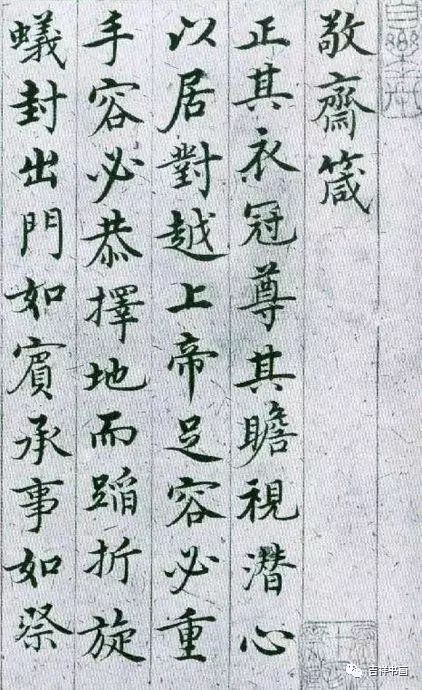 敬齋箴
正其衣冠尊其瞻視潛心
以居對越上帝足容必重
手容必恭擇地而蹈折旋
蟻封出門如賓承事如祭
吉祥书画